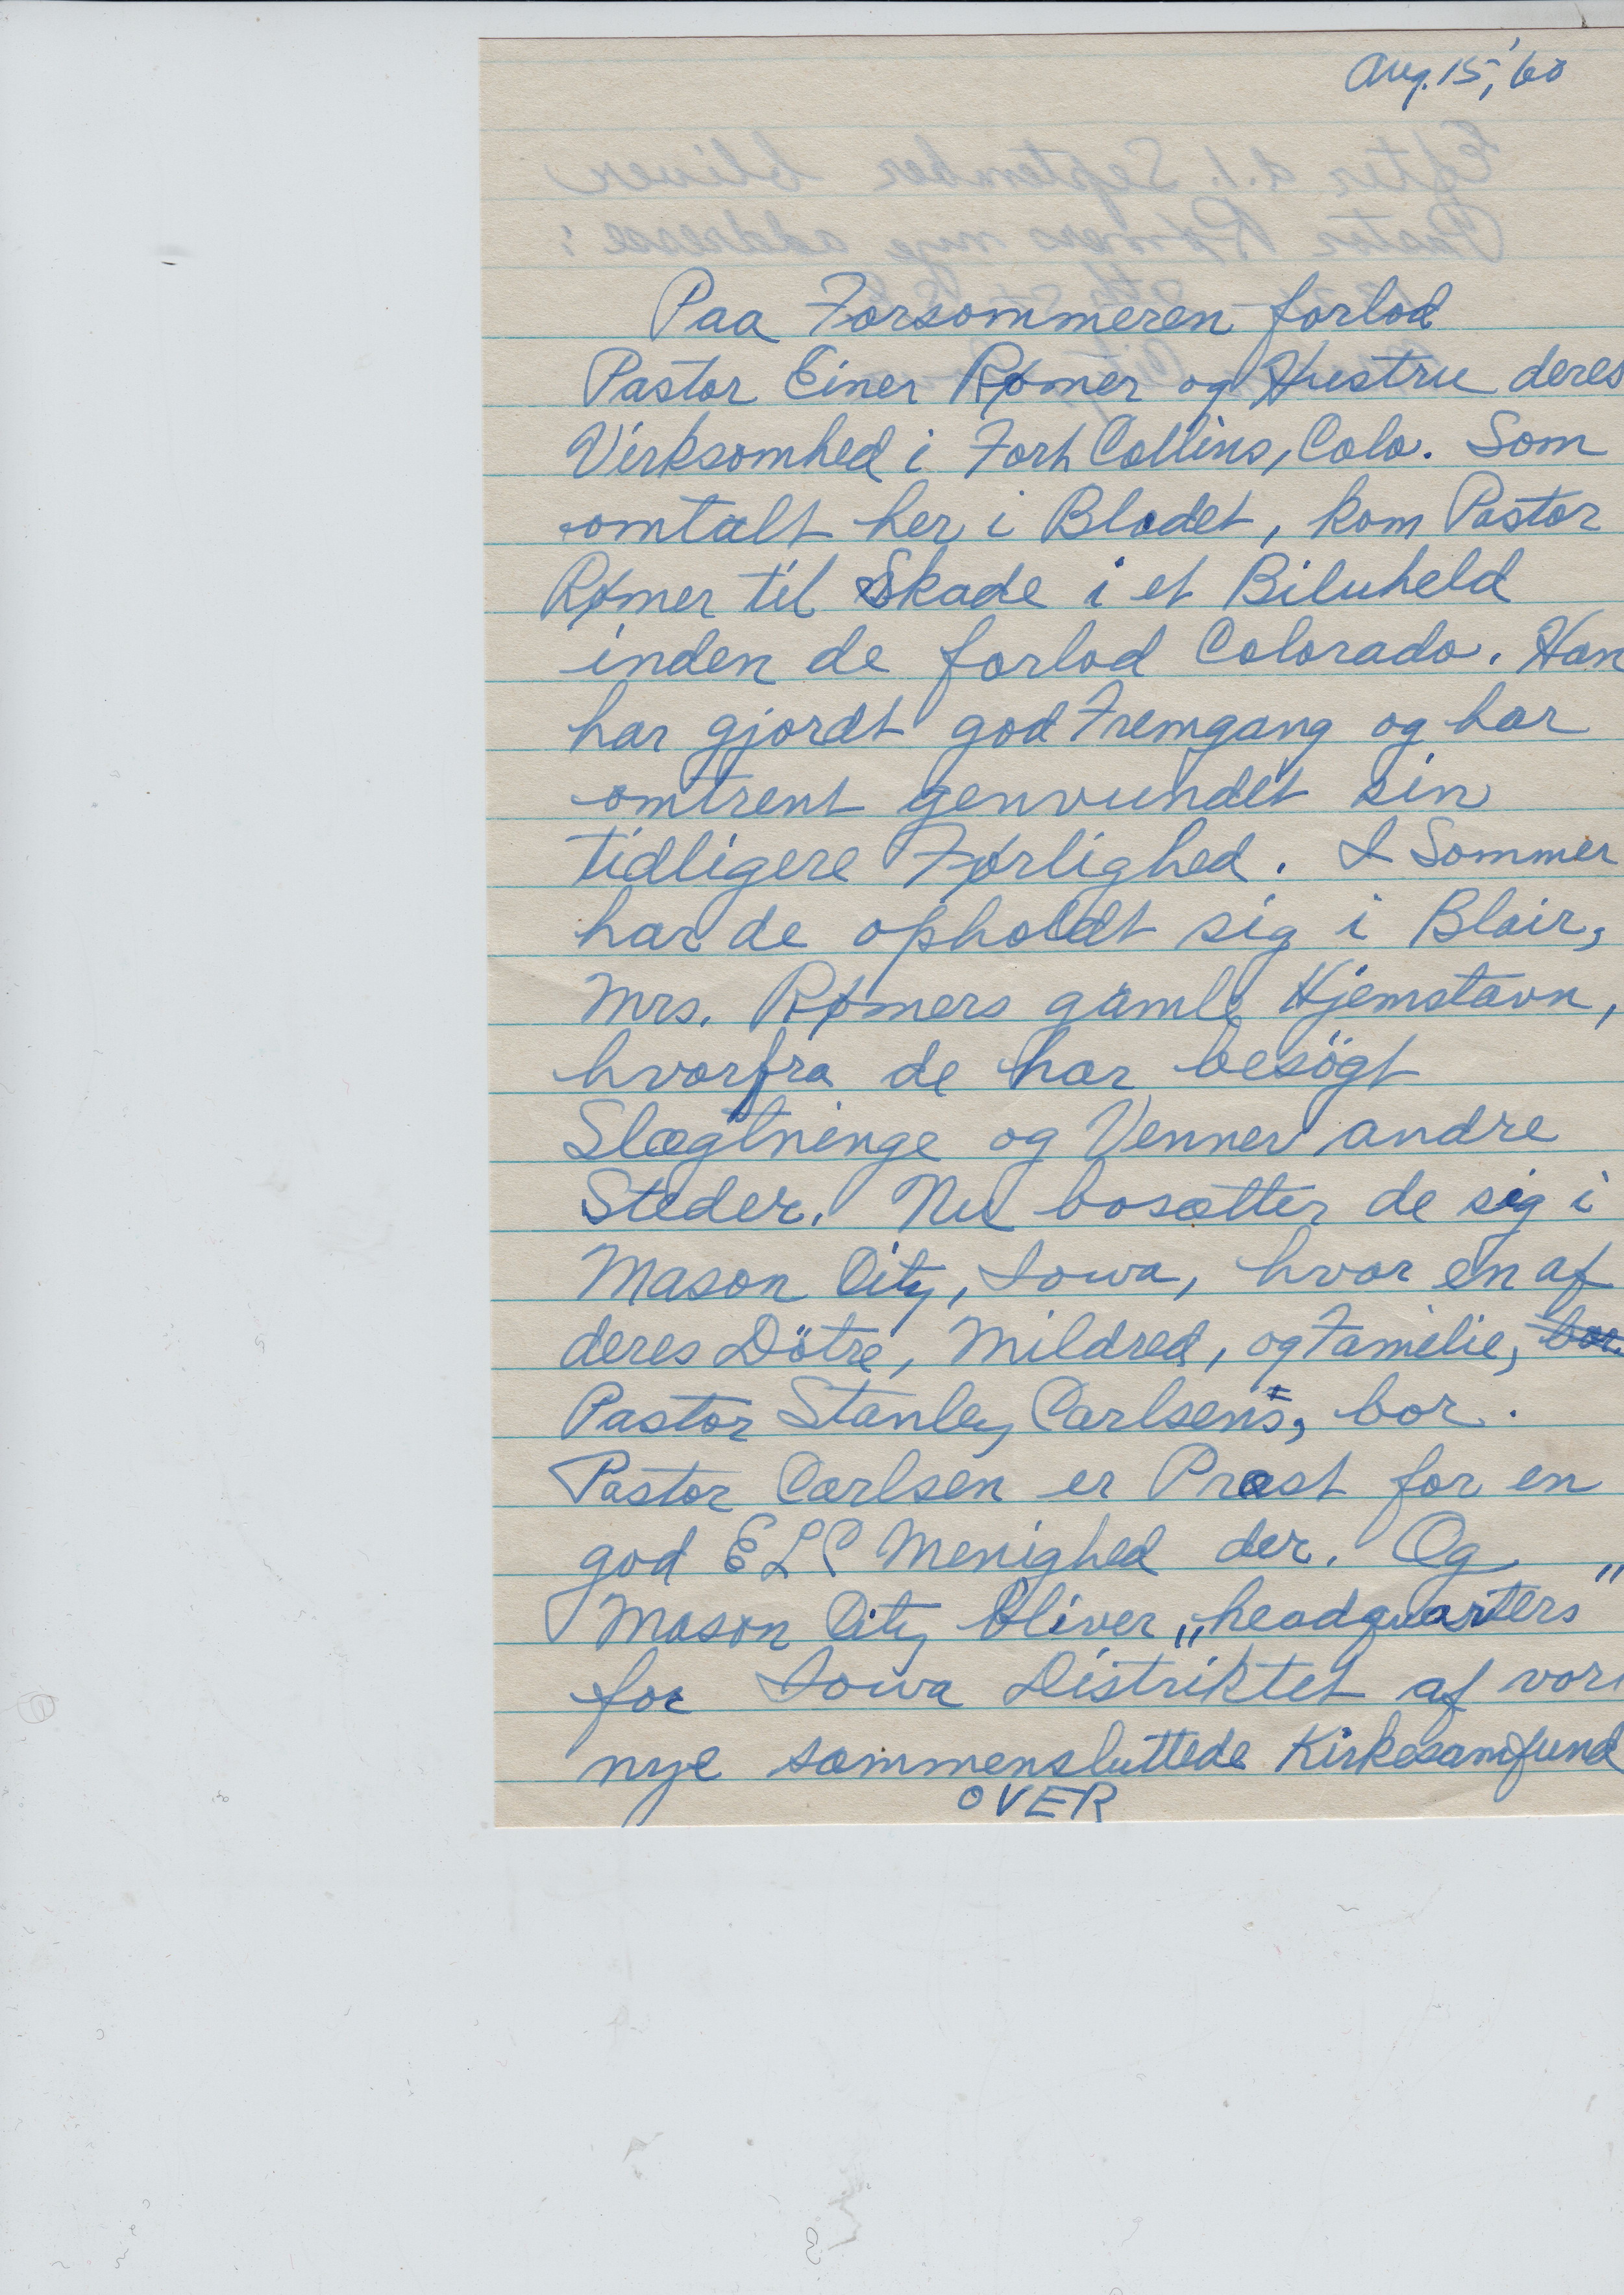 Aug. 15, '60
Paa Forsommeren forlod
Pastor Einer Rømer og Hustru deres
Virksomhed i Fort Collins, Colo. Som
omtalt her i Bladet, kom Pastor
Rømer til Skade i et Biluheld
inden de forlod Colorado. Han
har gjordt god Fremgang og har
omtrent genvundet sin
tidligere Førlighed. I Sommer
har de opholdt sig i Blair,
Mrs. Rømers gamle Hjemstavn,
hvorfra de har besögt
Slægtninge og Venner andre
Steder. Nu bosætter de sig i
Mason City, Iowa, hvor en af
deres Dötre, Mildred, og Familie, bor
Pastor Stanley Carlsens, bor.
Pastor Carlsen er Præst for en
god ELC Menighed der. Og
Mason City bliver „headquarters"
for Iowa Distriktet af vor
nye sammensluttede Kirkesamfund
OVER
Efter d. 1. September bliver
Pastor Rømers nye addresse: